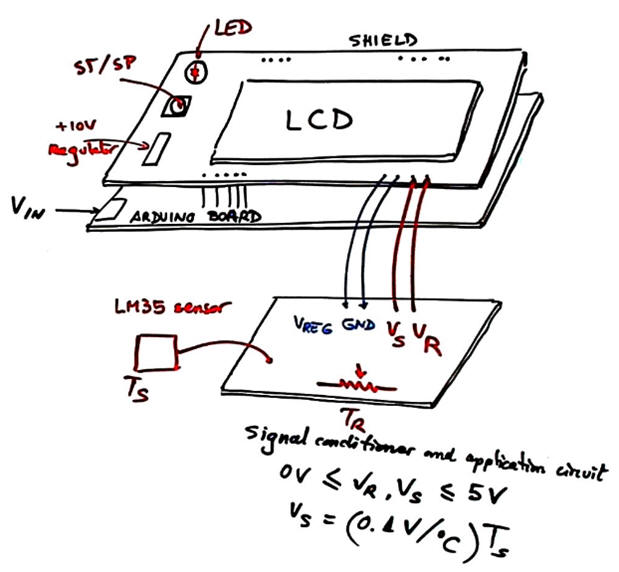 LED
SHIELD
ST/SP
+10V
Regulator
LCD
VIN
ARDUINO BOARD
LM35 sensor
VREG GND VS VR
TS
TR
Signal conditioner and application circuit
0V ≤ VR, VS ≤ 5V
VS = (0.1V/°C) TS